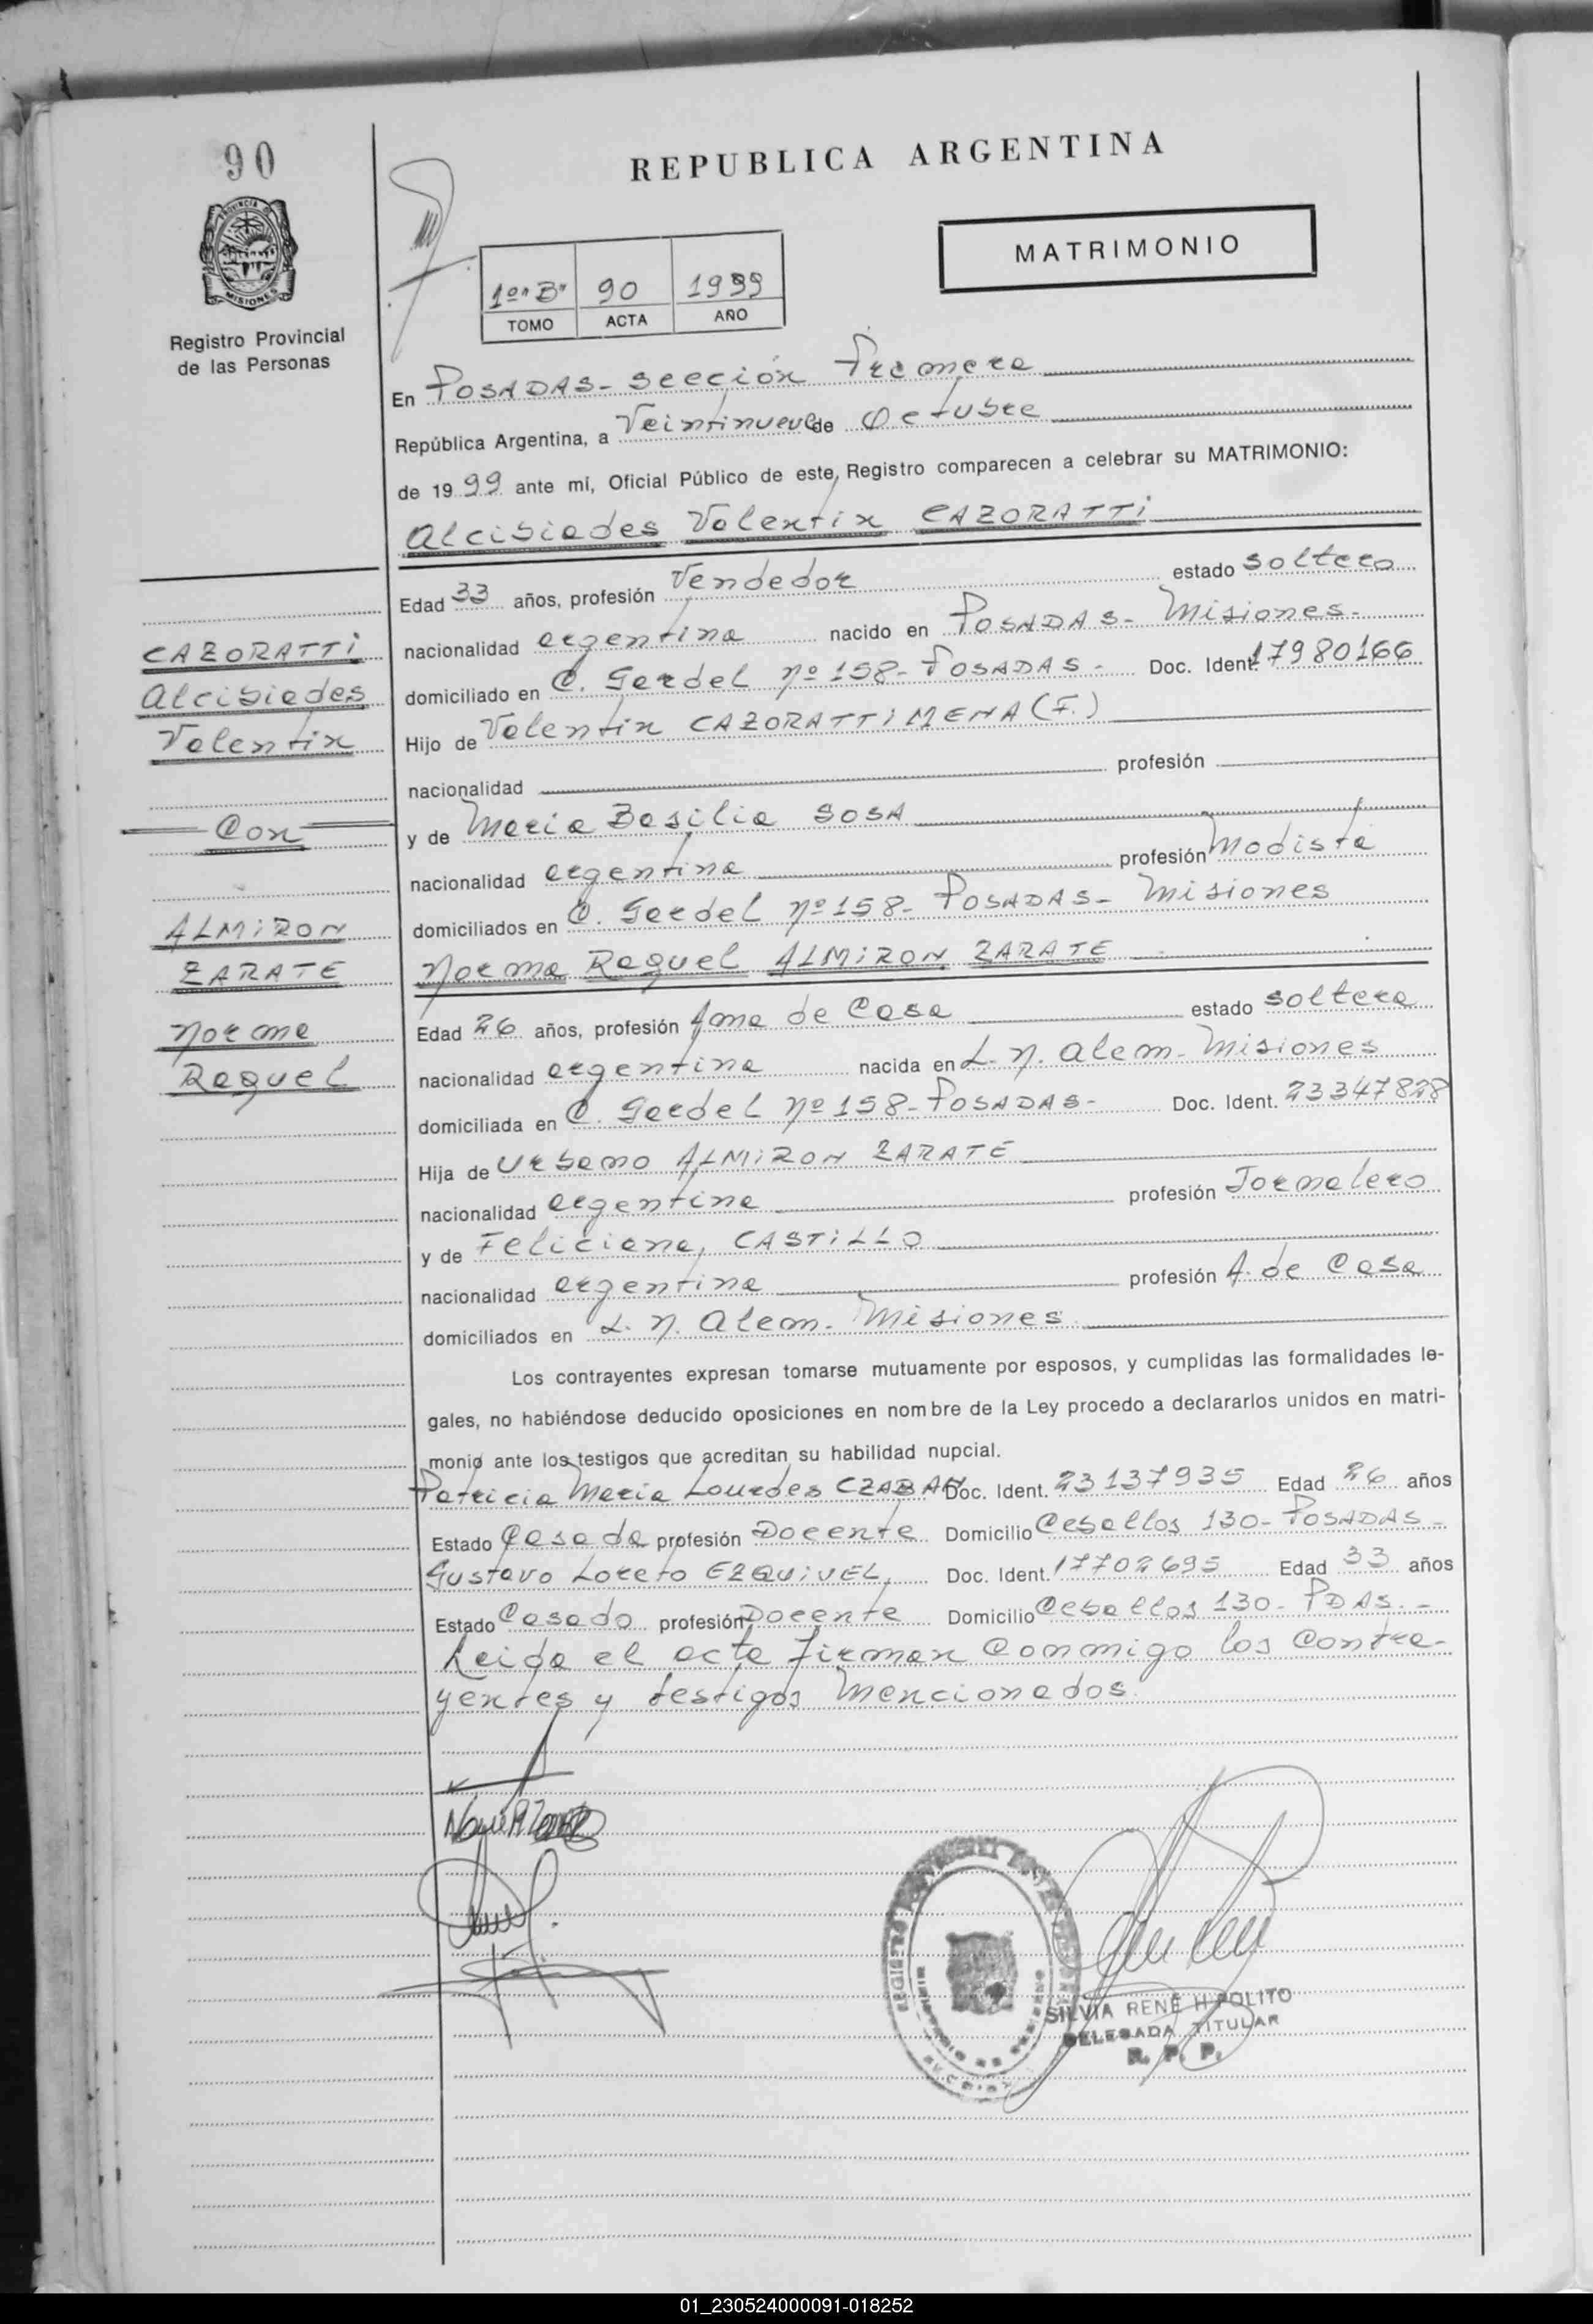 90
REPUBLICA ARGENTINA
PROVINCIA DE
MISIONES
MATRIMONIO
1º "B" 90 1999
TOMO ACTA AÑO
Registro Provincial
de las Personas
En POSADAS - Sección Primera
República Argentina, a Veintinueve de Octubre
de 1999 ante mí, Oficial Público de este Registro comparecen a celebrar su MATRIMONIO:
Alcibiades Valentin CAZORATTI
Edad 33 años, profesión Vendedor estado soltero
nacionalidad argentina nacido en POSADAS - Misiones -
domiciliado en C. Gardel nº 158 - POSADAS - Doc. Ident. 17980166
Hijo de Valentin CAZORATTI MENA (F.)
nacionalidad profesión
y de Maria Basilia SOSA
nacionalidad argentina profesión Modista
domiciliados en C. Gardel nº 158 - POSADAS - Misiones
Norma Raquel ALMIRON ZARATE
Edad 26 años, profesión Ama de Casa estado soltera
nacionalidad argentina nacida en L. N. Alem - Misiones
domiciliada en C. Gardel nº 158 - POSADAS - Doc. Ident. 23347828
Hija de Urbano ALMIRON ZARATE
nacionalidad argentina profesión Jornalero
y de Feliciana, CASTILLO
nacionalidad argentina profesión A. de Casa
domiciliados en L. N. Alem - Misiones
CAZORATTI
Alcibiades
Valentin
Con
ALMIRON
ZARATE
Norma
Raquel
Los contrayentes expresan tomarse mutuamente por esposos, y cumplidas las formalidades le-
gales, no habiéndose deducido oposiciones en nombre de la Ley procedo a declararlos unidos en matri-
monio ante los testigos que acreditan su habilidad nupcial.
Patricia Maria Lourdes CZABAN Doc. Ident. 23137935 Edad 26 años
Estado Casada profesión Docente Domicilio Ceballos 130 - POSADAS -
Gustavo Loreto EZQUIVEL, Doc. Ident. 17702695 Edad 33 años
Estado Casado profesión Docente Domicilio Ceballos 130 - PDAS. -
Leida el acta firman conmigo los contra-
yentes y testigos mencionados.
SILVIA RENÉ HIPOLITO
DELEGADA TITULAR
R. P. P.
01_230524000091-018252